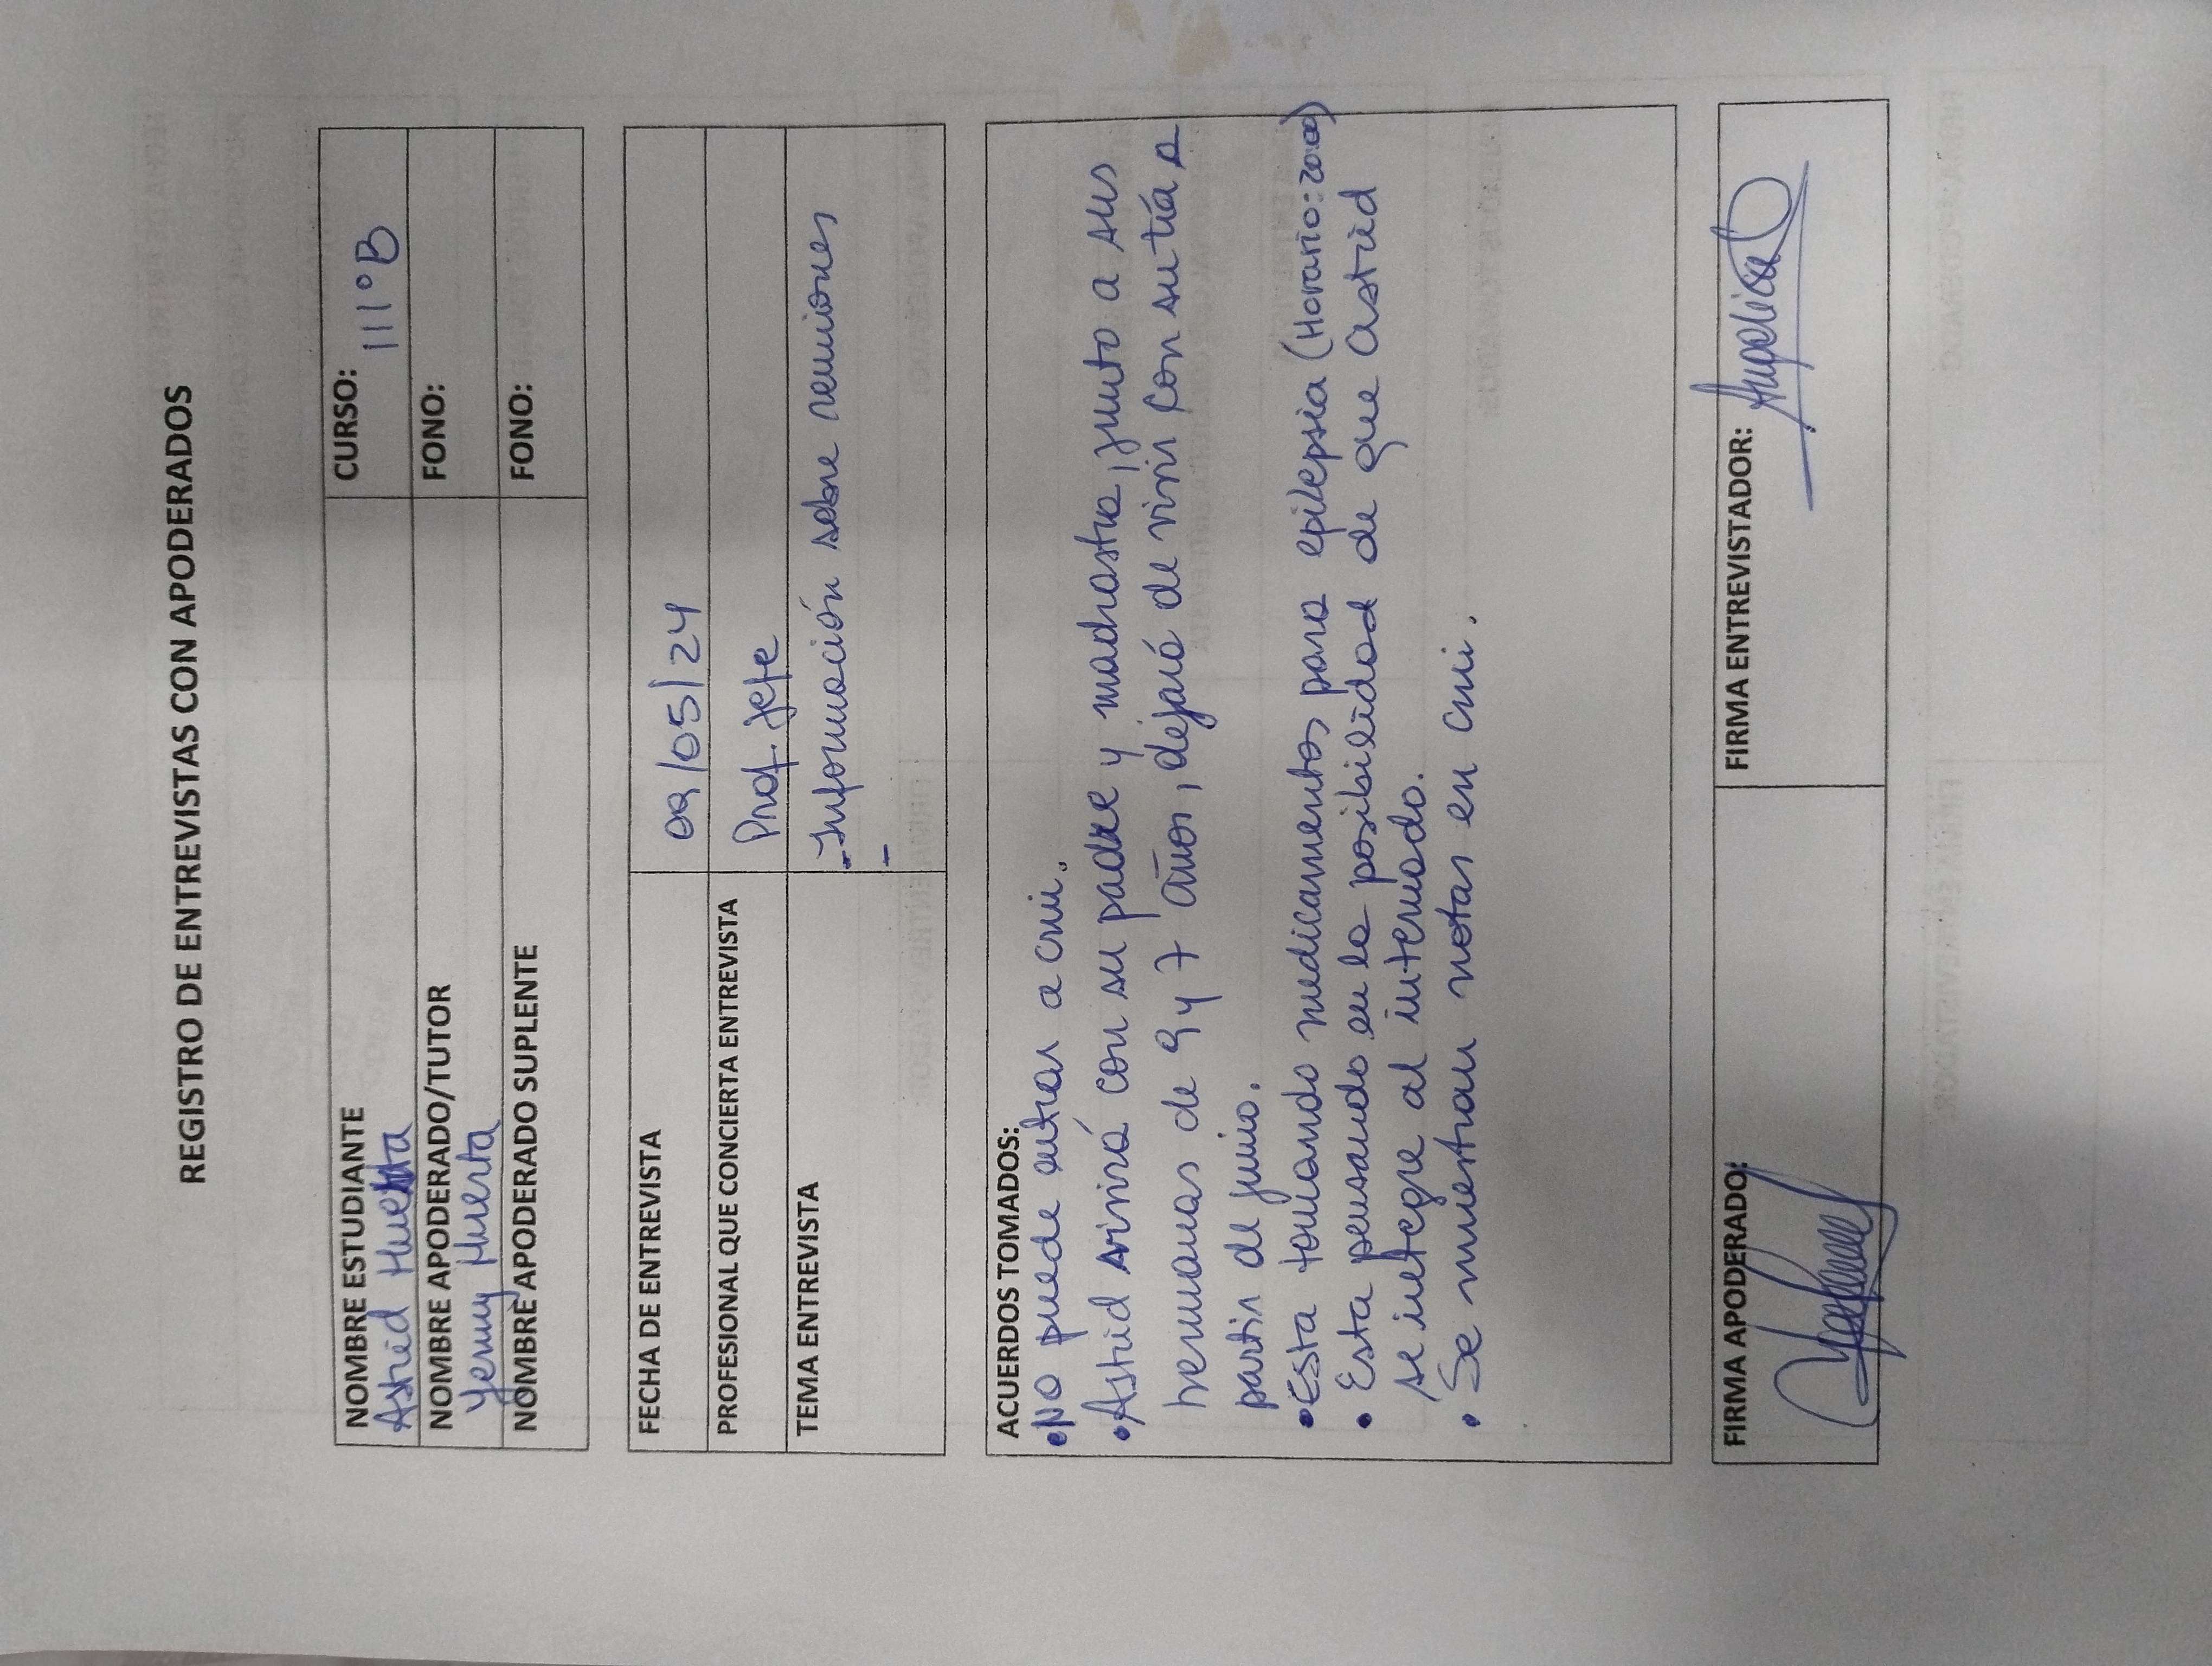 REGISTRO DE ENTREVISTAS CON APODERADOS
NOMBRE ESTUDIANTE CURSO:
Astrid Huerta III°B
NOMBRE APODERADO/TUTOR FONO:
Yenny Huerta
NOMBRE APODERADO SUPLENTE FONO:
FECHA DE ENTREVISTA 09/05/24
PROFESIONAL QUE CONCIERTA ENTREVISTA Prof. jefe
TEMA ENTREVISTA - Información sobre reuniones
-
ACUERDOS TOMADOS:
• No puede entrar a cmi.
• Astrid vivirá con su padre y madrastra, junto a sus
hermanas de 9 y 7 años, dejará de vivir con su tía a
partir de junio.
• Esta tomando medicamentos para epilepsia (Horario: 20:00)
• Esta pensando en la posibilidad de que Astrid
se integre al internado.
• Se muestran notas en cmi.
FIRMA APODERADO: FIRMA ENTREVISTADOR: